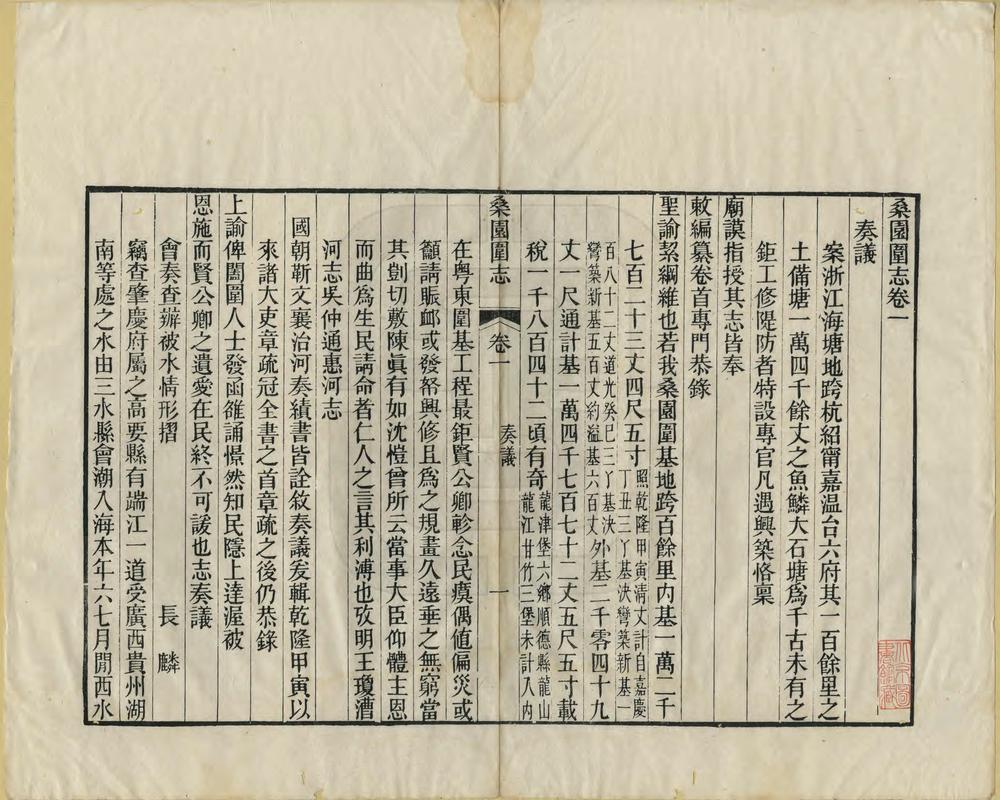 桑園圍志卷一
奏議
案浙江海塘地跨杭紹甯嘉温台六府其一百餘里之
土備塘一萬四千餘丈之魚鱗大石塘爲千古未有之
鉅工修隄防者特設專官凡遇興築恪稟
廟謨指授其志皆奉
敕編纂卷首專門恭錄
聖諭絜綱維也若我桑園圍基地跨百餘里内基一萬二千
七百二十三丈四尺五寸照乾隆甲寅清丈計自嘉慶
丁丑三丫基決彎築新基一
百八十二丈道光癸巳三丫基決
彎築新基五百丈約溢基六百丈外基二千零四十九
丈一尺通計基一萬四千七百七十二丈五尺五寸載
稅一千八百四十二頃有奇龍津堡六鄉順德縣龍山
龍江甘竹三堡未計入内
桑園圍志
卷一
奏議
一
在粤東圍基工程最鉅賢公卿軫念民瘼偶值偏災或
籲請賑卹或發帑興修且爲之規畫久遠垂之無窮當
其剴切敷陳眞有如沈愷曾所云當事大臣仰體主恩
而曲爲生民請命者仁人之言其利溥也攷明王瓊漕
河志吳仲通惠河志
國朝靳文襄治河奏績書皆詮敘奏議爰輯乾隆甲寅以
來諸大吏章疏冠全書之首章疏之後仍恭錄
上諭俾闔圍人士發函雒誦憬然知民隱上達渥被
恩施而賢公卿之遺愛在民終不可諼也志奏議
會奏查辦被水情形摺
長麟
竊查肇慶府屬之高要縣有端江一道受廣西貴州湖
南等處之水由三水縣會潮入海本年六七月閒西水